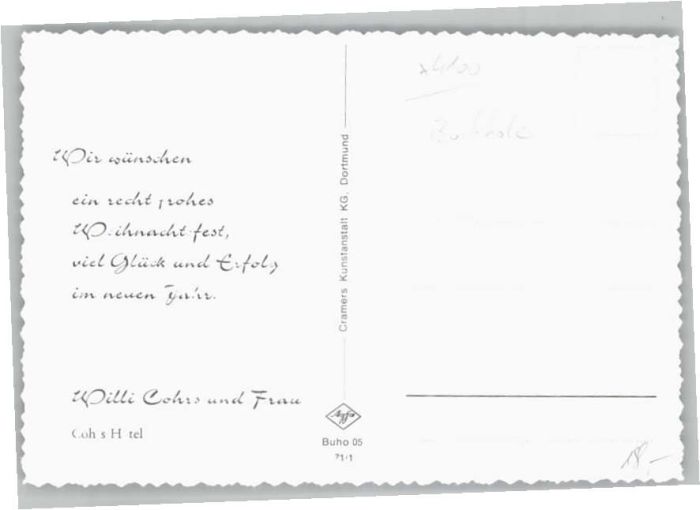 Wir wünschen
ein recht frohes
Weihnachtsfest,
viel Glück und Erfolg
im neuen Jahr.
Willi Cohrs und Frau
Coh s H tel
Cramers Kunstanstalt KG. Dortmund
Agfa
Buho 05
71/1
*4100
Buchholz
18,-